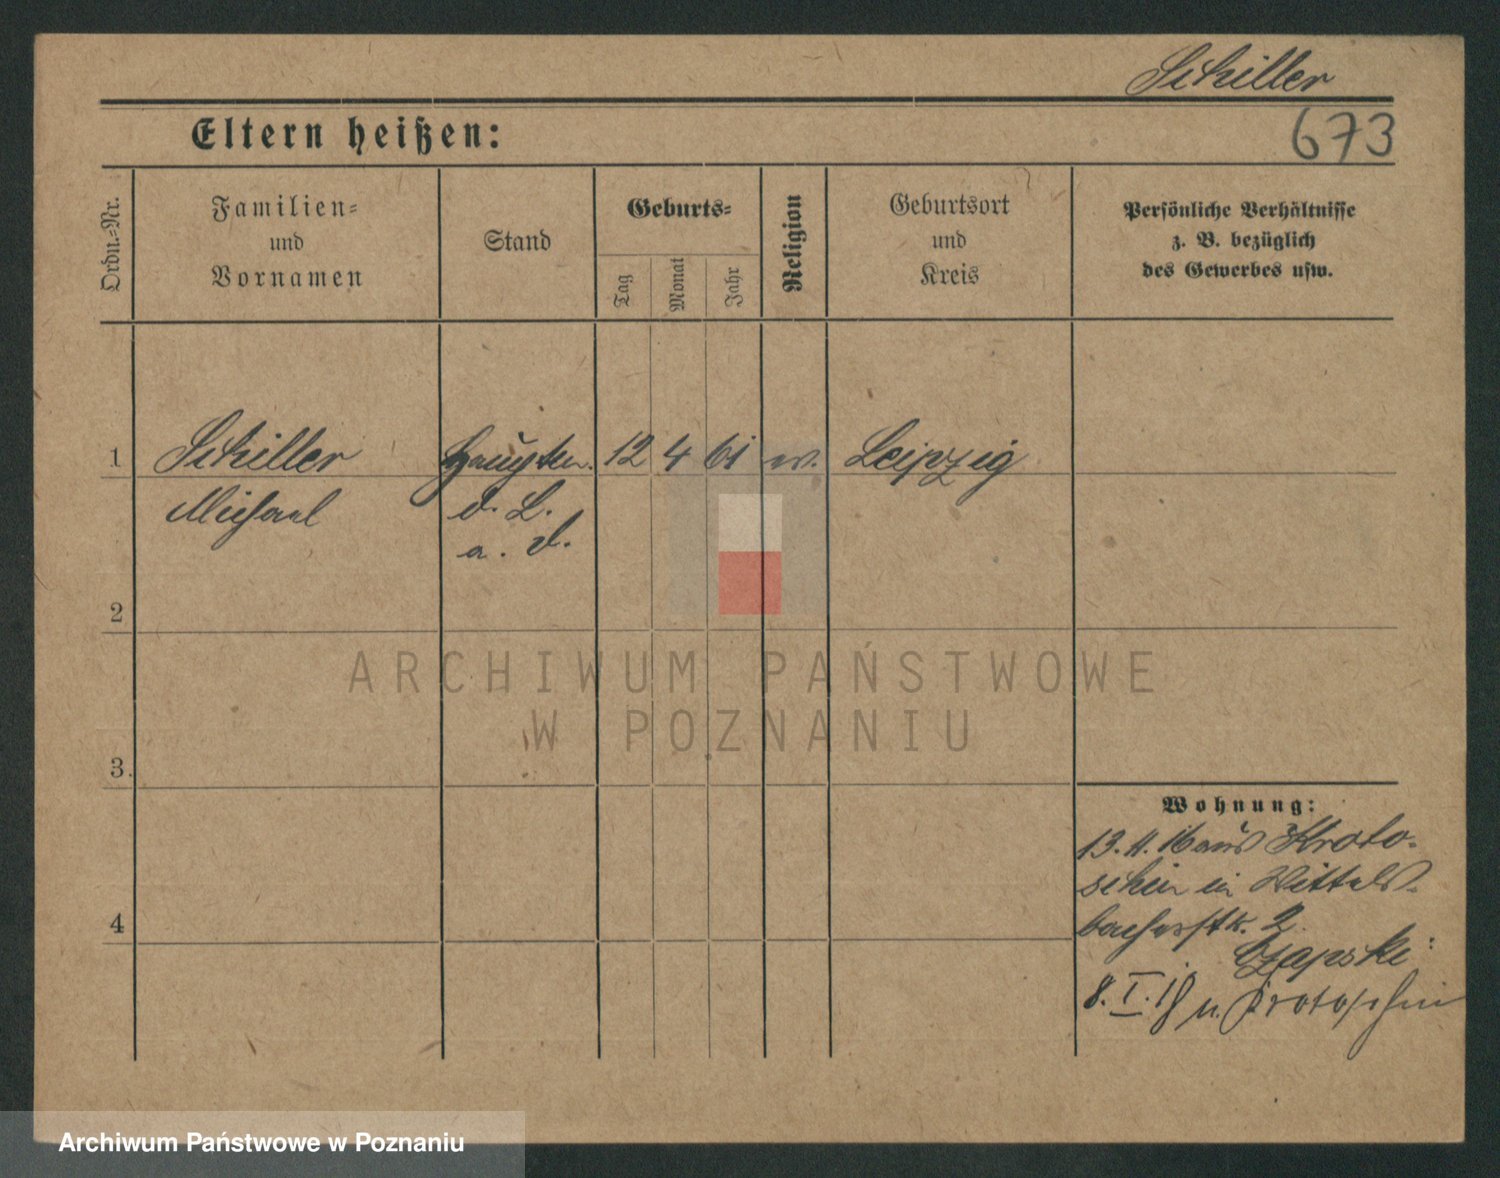 Schiller
Eltern heißen:
673
Ordn.-Nr.
Familien-
und
Vornamen
Stand
Geburts-
Tag
Monat
Jahr
Religion
Geburtsort
und
Kreis
Persönliche Verhältnisse
z. B. bezüglich
des Gewerbes usw.
1
Schiller
Hauptm.
12
4
61
Leipzig
Michael
d. L.
a. D.
2
ARCHIWUM PAŃSTWOWE
W POZNANIU
3.
Wohnung:
13.11.16 aus Kroto-
schin in Wittels-
bacherstr. 2
4
Czapski
8. I. 18 n. Krotoschin
Archiwum Państwowe w Poznaniu